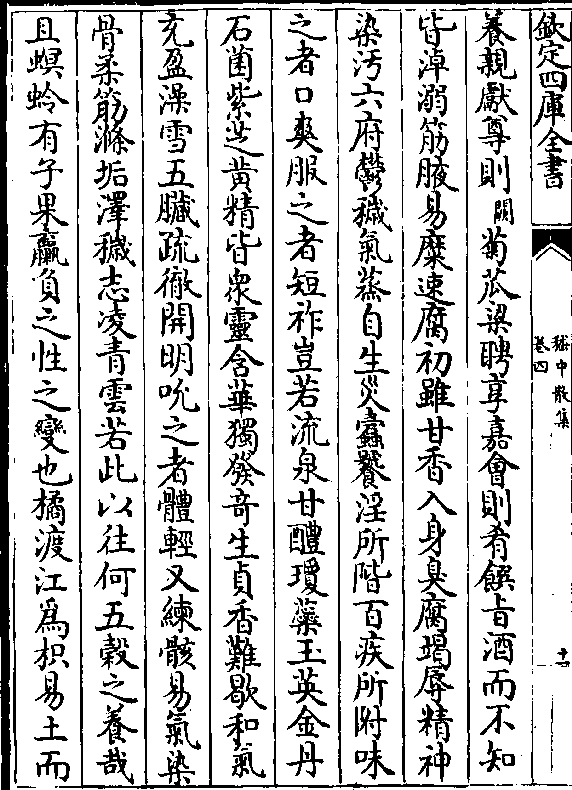 欽定四庫全書
嵇中散集
卷四
十一
養親獻尊則闕菊苽梁聘享嘉會則肴饌旨酒而不知
皆淖溺筋腋易糜速腐初雖甘香入身臭腐竭辱精神
染汚六府鬱穢氣蒸自生災蠹饕淫所階百疾所附味
之者口爽服之者短祚豈若流泉甘醴瓊蘂玉英金丹
石菌紫芝黄精皆衆靈含華獨發竒生貞香難歇和氣
充盈澡雪五臓疏徹開明吮之者體輕又練骸易氣染
骨柔筋滌垢澤穢志凌青雲若此以往何五穀之養哉
且螟蛉有子果蠃負之性之變也橘渡江為枳易土而